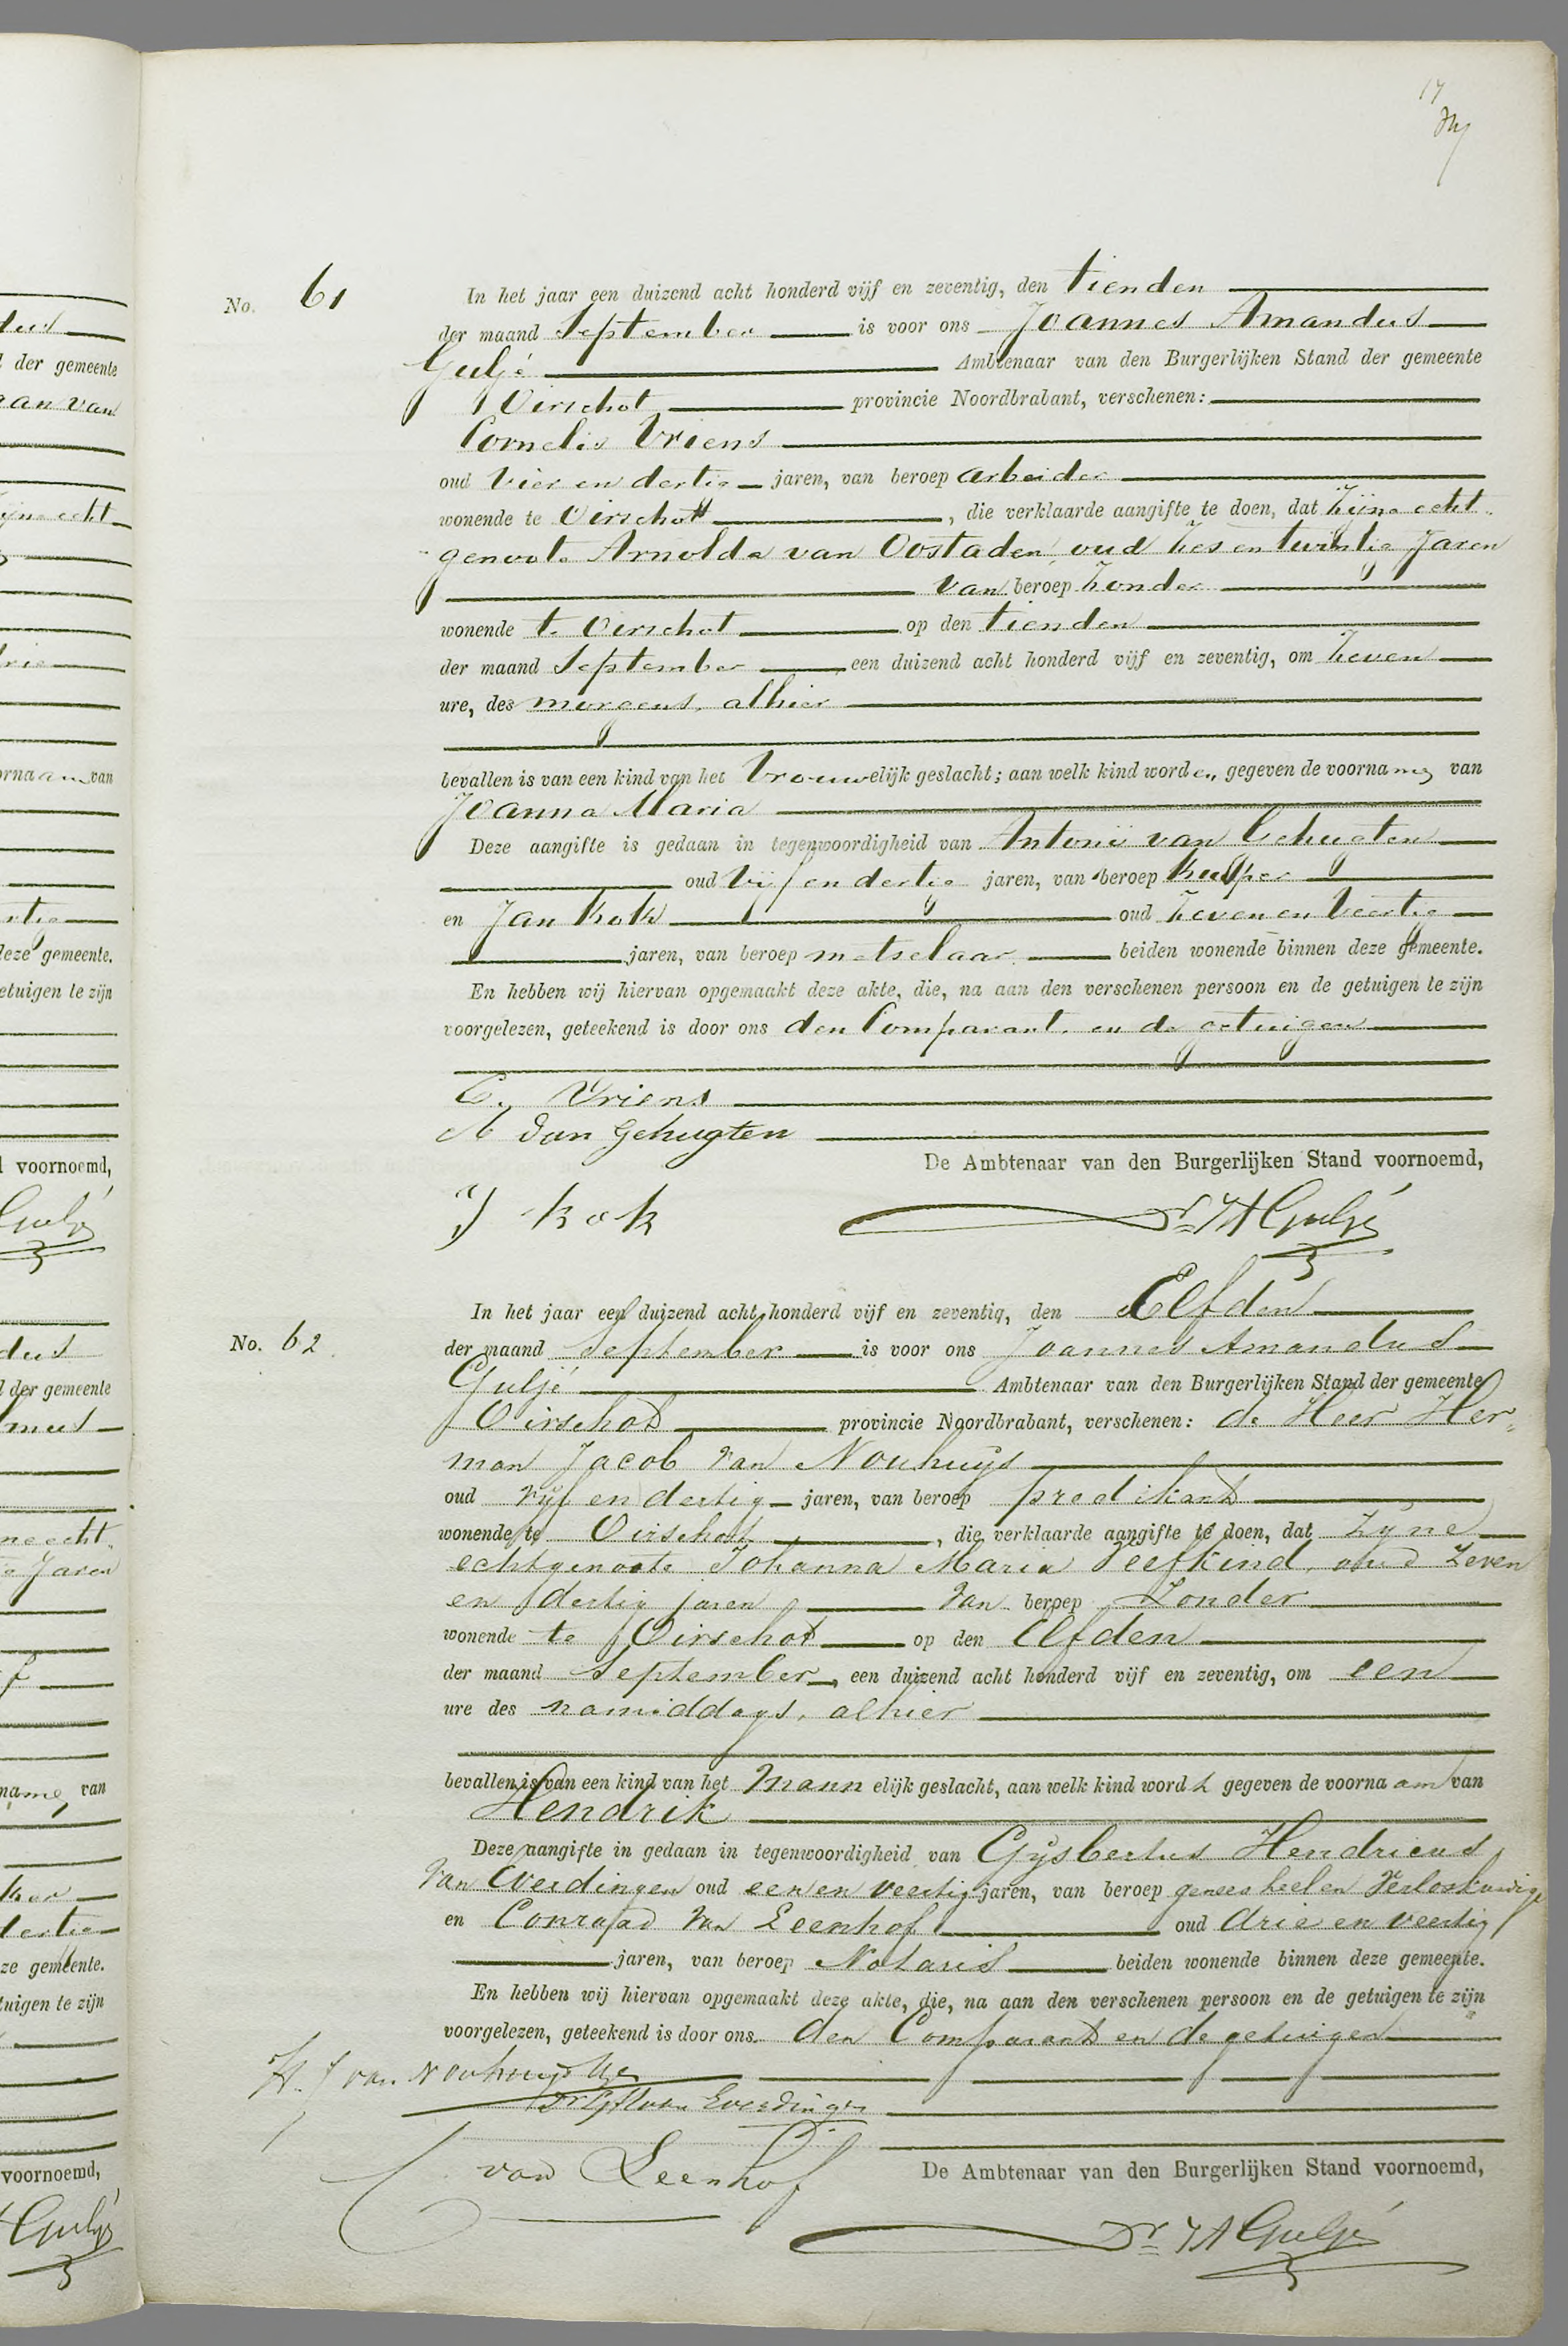 17
No. 61
In het jaar een duizend acht honderd vijf en zeventig, den tienden
der maand September is voor ons Joannes Amandus
Guljé Ambtenaar van den Burgerlijken Stand der gemeente
Oirschot provincie Noordbrabant, verschenen:
Cornelis Vriens
oud vier en dertig jaren, van beroep arbeider
wonende te Oirschot, die verklaarde aangifte te doen, dat Zijne echt
genoote Arnolda van Oostaden, oud Zes en twintig Jaren
van beroep Zonder
wonende te Oirschot op den tienden
der maand September een duizend acht honderd vijf en zeventig, om Zeven
ure, des morgens, alhier
bevallen is van een kind van het Vrouwelijk geslacht; aan welk kind worden gegeven de voornamen van
Joanna Maria
Deze aangifte is gedaan in tegenwoordigheid van Antonij van Gehugten
oud Vijf en dertig jaren, van beroep Kuijper
en Jan Kok oud Zeven en Veertig
jaren, van beroep metselaar beiden wonende binnen deze gemeente.
En hebben wij hiervan opgemaakt deze akte, die, na aan den verschenen persoon en de getuigen te zijn
voorgelezen, geteekend is door ons den Comparant en de getuigen
C. Vriens
A van Gehugten
De Ambtenaar van den Burgerlijken Stand voornoemd,
J kok Dr JA Guljé
In het jaar een duizend acht honderd vijf en zeventig, den Elfden
No. 62. der maand September is voor ons Joannes Amandus
Guljé Ambtenaar van den Burgerlijken Stand der gemeente
Oirschot provincie Noordbrabant, verschenen: de Heer Her-
man Jacob van Nouhuijs
oud vijf en dertig jaren, van beroep predikant
wonende te Oirschot, die verklaarde aangifte te doen, dat Zijne
echtgenoote Johanna Maria Seefkind, oud Zeven
en dertig jaren van beroep Zonder
wonende te Oirschot op den Elfden
der maand September, een duizend acht honderd vijf en zeventig, om een
ure des namiddags, alhier
bevallen is van een kind van het Mannelijk geslacht, aan welk kind wordt gegeven de voornaam van
Hendrik
Deze aangifte in gedaan in tegenwoordigheid van Gijsbertus Hendricus
van Everdingen oud een en veertig jaren, van beroep genees heel en Verloskundige
en Conraad van Leenhof oud drie en veertig
jaren, van beroep Notaris beiden wonende binnen deze gemeente.
En hebben wij hiervan opgemaakt deze akte, die, na aan den verschenen persoon en de getuigen te zijn
voorgelezen, geteekend is door ons. den Comparant en de getuigen
H. J van Nouhuijs
Dr GH van Everdingen
C van Leenhof De Ambtenaar van den Burgerlijken Stand voornoemd,
Dr JA Guljé